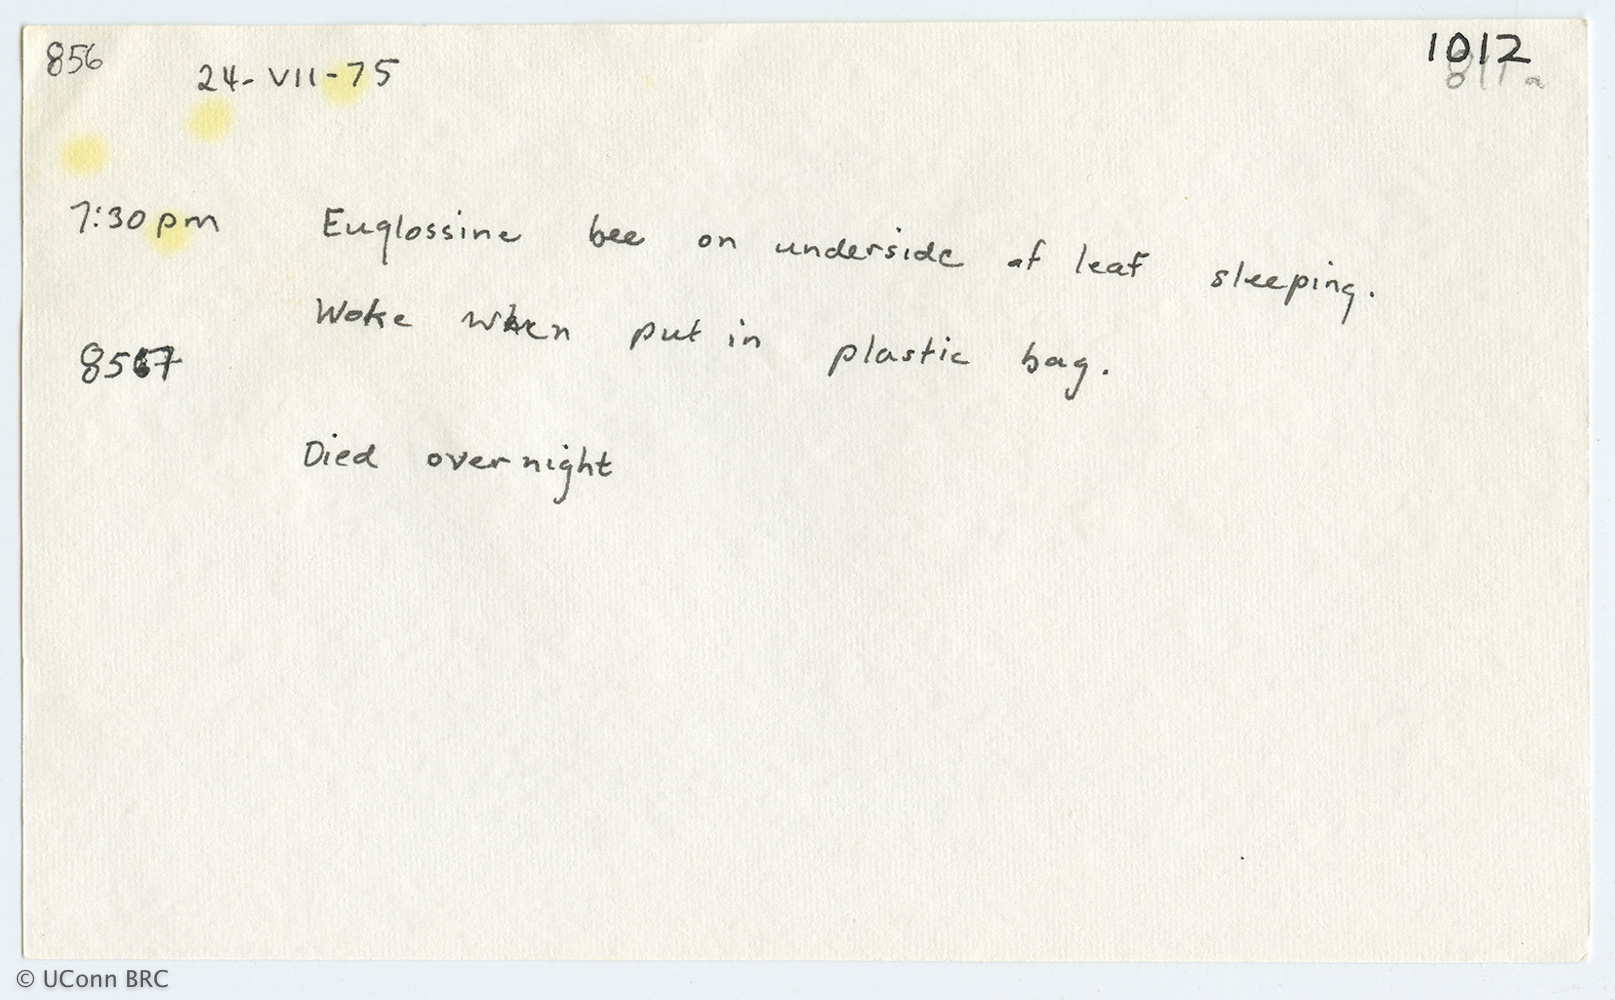 856
24-VII-75
1012
811a
7:30pm Euglossine bee on underside of leaf sleeping.
Woke when put in plastic bag.
857
Died overnight
© UConn BRC